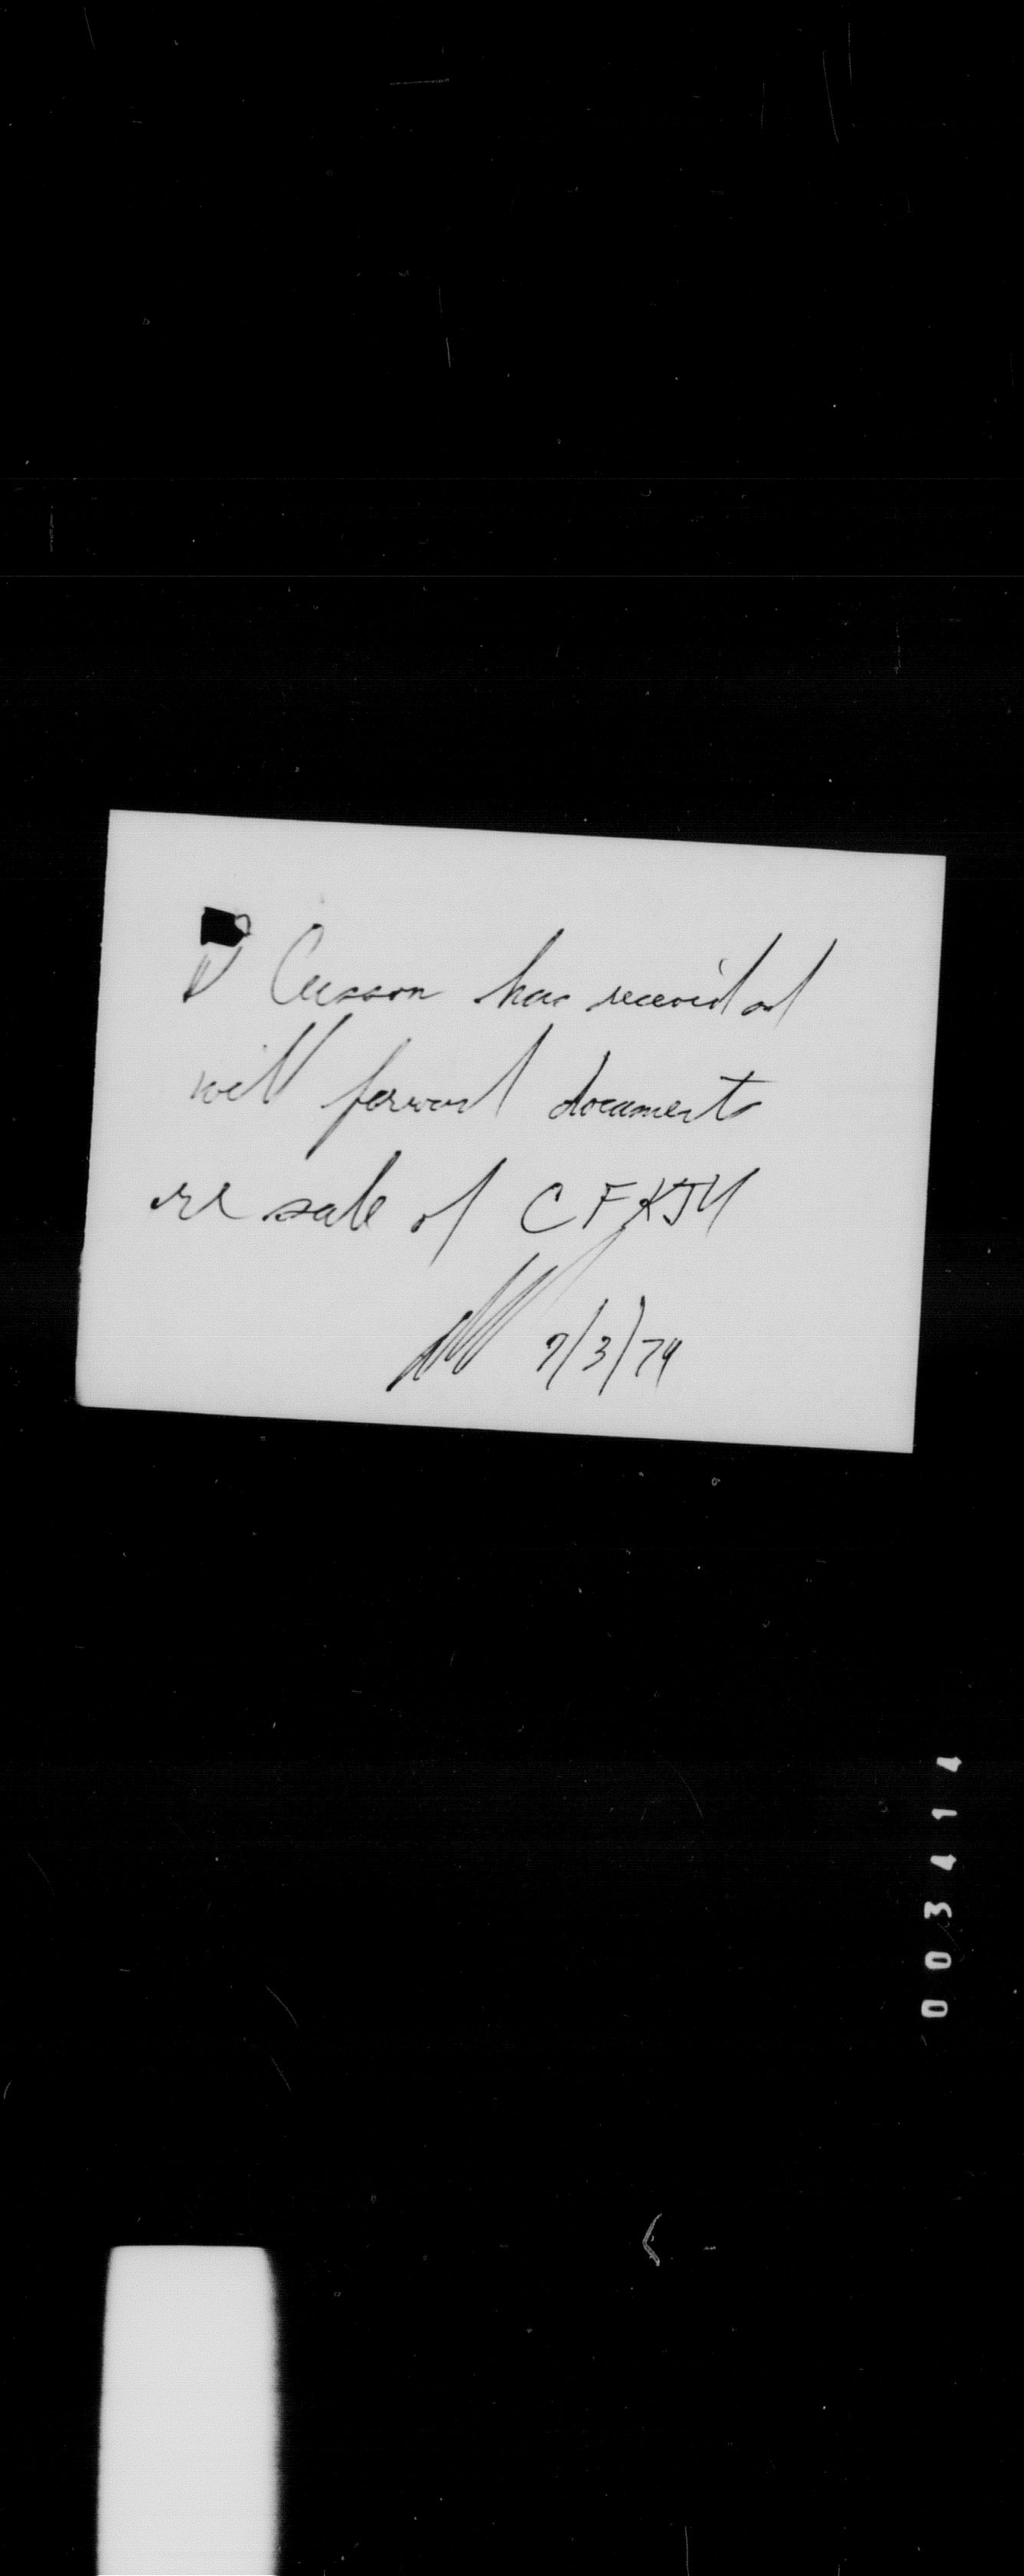 D Cusson has received and
will forward documents
re sale of CFKJY
7/3/79
003414